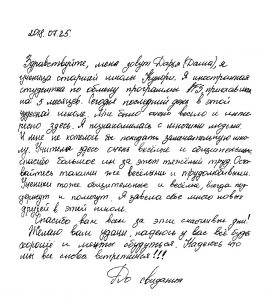 2018.07.25.
Здравствуйте, меня зовут Дарья (Даша), я
ученица старшей школы. Я иностранная
студентка по обмену программы AFS, приехавшая
на 5 месяцев. Сегодня последний день в этой
чудесной школе. Мне было очень весело и инте-
ресно здесь. Я познакомилась с многими людьми.
И мне не хочется покидать замечательную шко-
лу. Учителя здесь очень весёлые и общительные,
спасибо большое им за этот тяжёлый труд. Оста-
вайтесь такими же весёлыми и трудолюбивыми.
Ученики тоже общительные и весёлые, всегда под-
держут и помогут. Я завела себе много новых
друзей в этой школе.
Спасибо вам всем за эти счастливые дни!
Желаю вам удачи, надеюсь у вас всё будь
хорошо и мечты сбудуться. Надеюсь что
мы все снова встретимся!!!
До свидания